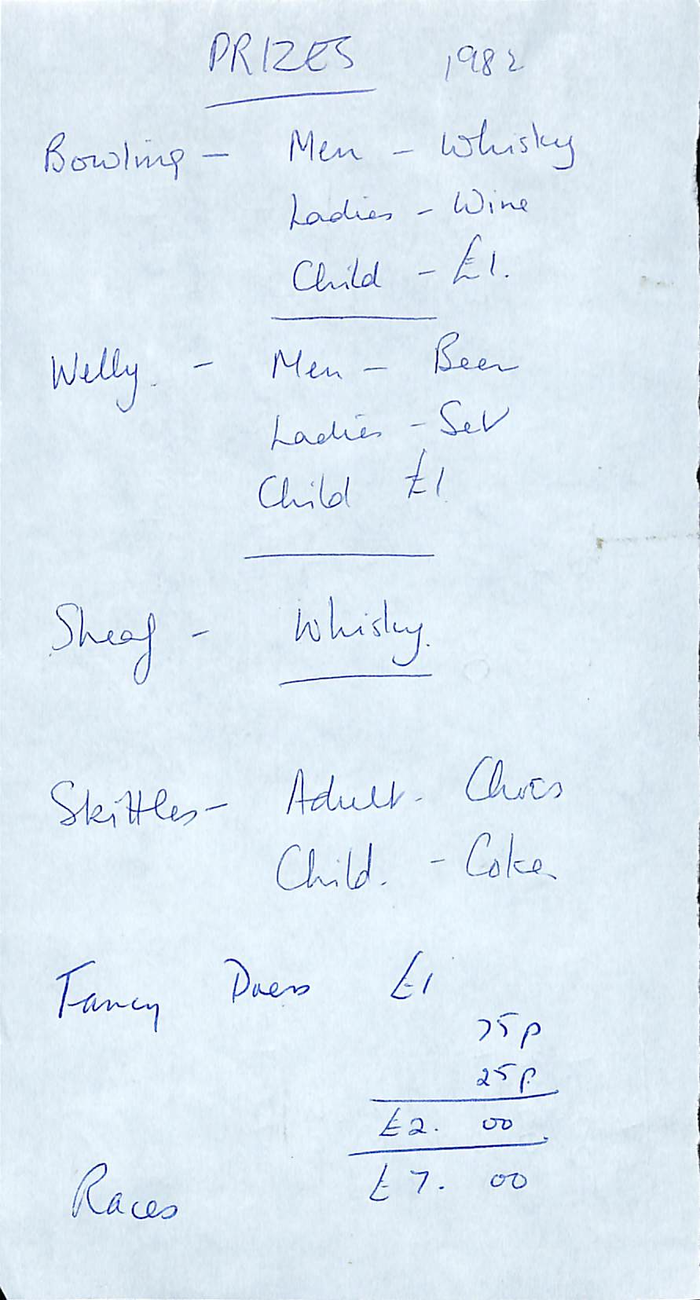 PRIZES 1982
Bowling - Men - Whisky
Ladies - Wine
Child - £1.
Welly. - Men - Beer
Ladies - Set
Child £1
Sheaf - Whisky.
Skittles - Adult -
Child. - Coke
Fancy Dress £1
75p
25p.
£2. 00
£7. 00
Races